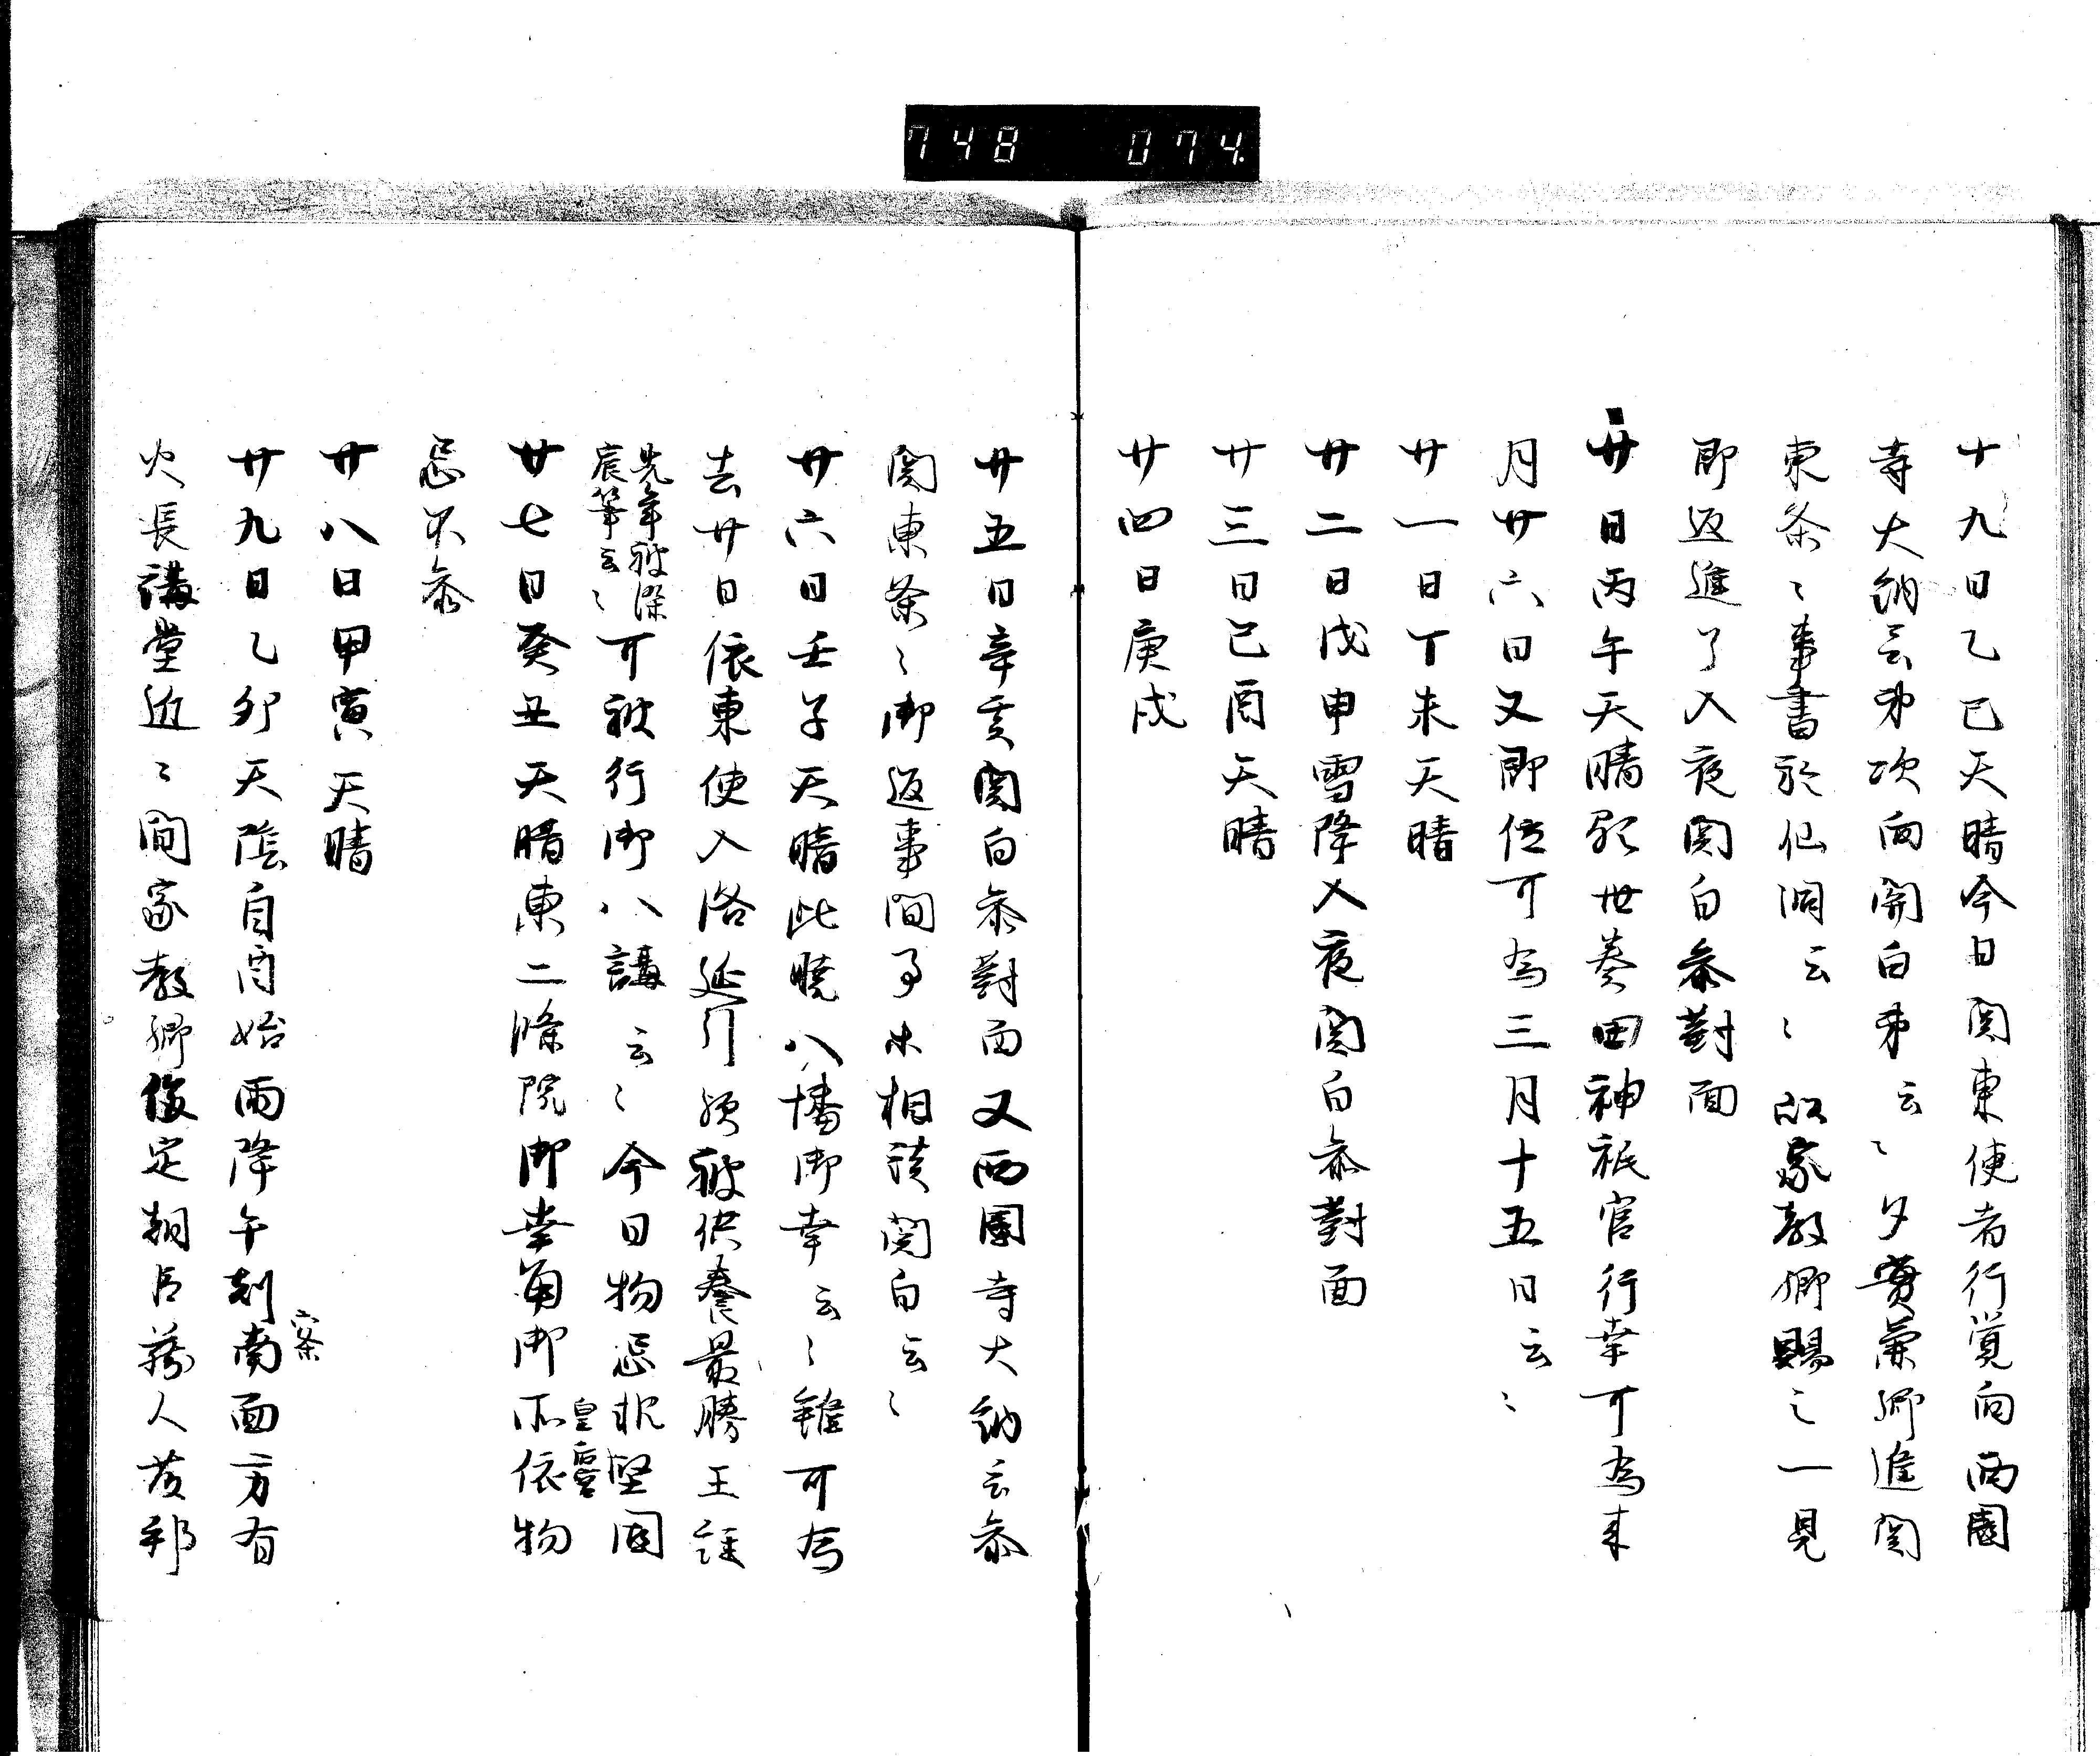 748 074
十九日乙巳天晴今日関東使者行覚向西園
寺大納言弟次向関白弟云々夕實兼卿進関
東条々事書於仙洞云々以家教卿賜之一見
即返進了入夜関白参對面
廿日丙午天晴頭世奏曰神祇官行幸可為来
月廿六日又即位可為三月十五日云々
廿一日丁未天晴
廿二日戊申雪降入夜関白参對面
廿三日己酉天晴
廿四日庚戌
廿五日辛亥関白参對面又西園寺大納言参
関東条々御返事間事等相談関白云々
廿六日壬子天晴此暁八幡御幸云々雖可為
去廿日依東使入洛延引被供養最勝王経
先年被染
宸筆云々可被行御八講云々今日物忌堅固
廿七日癸丑天晴東二條院御幸角御所依物
皇后宮
忌不参
廿八日甲寅天晴
廿九日乙卯天陰自酉始雨降午刻南面方有
案
火長講堂近々間家教卿俊定朝臣蔵人茂邦